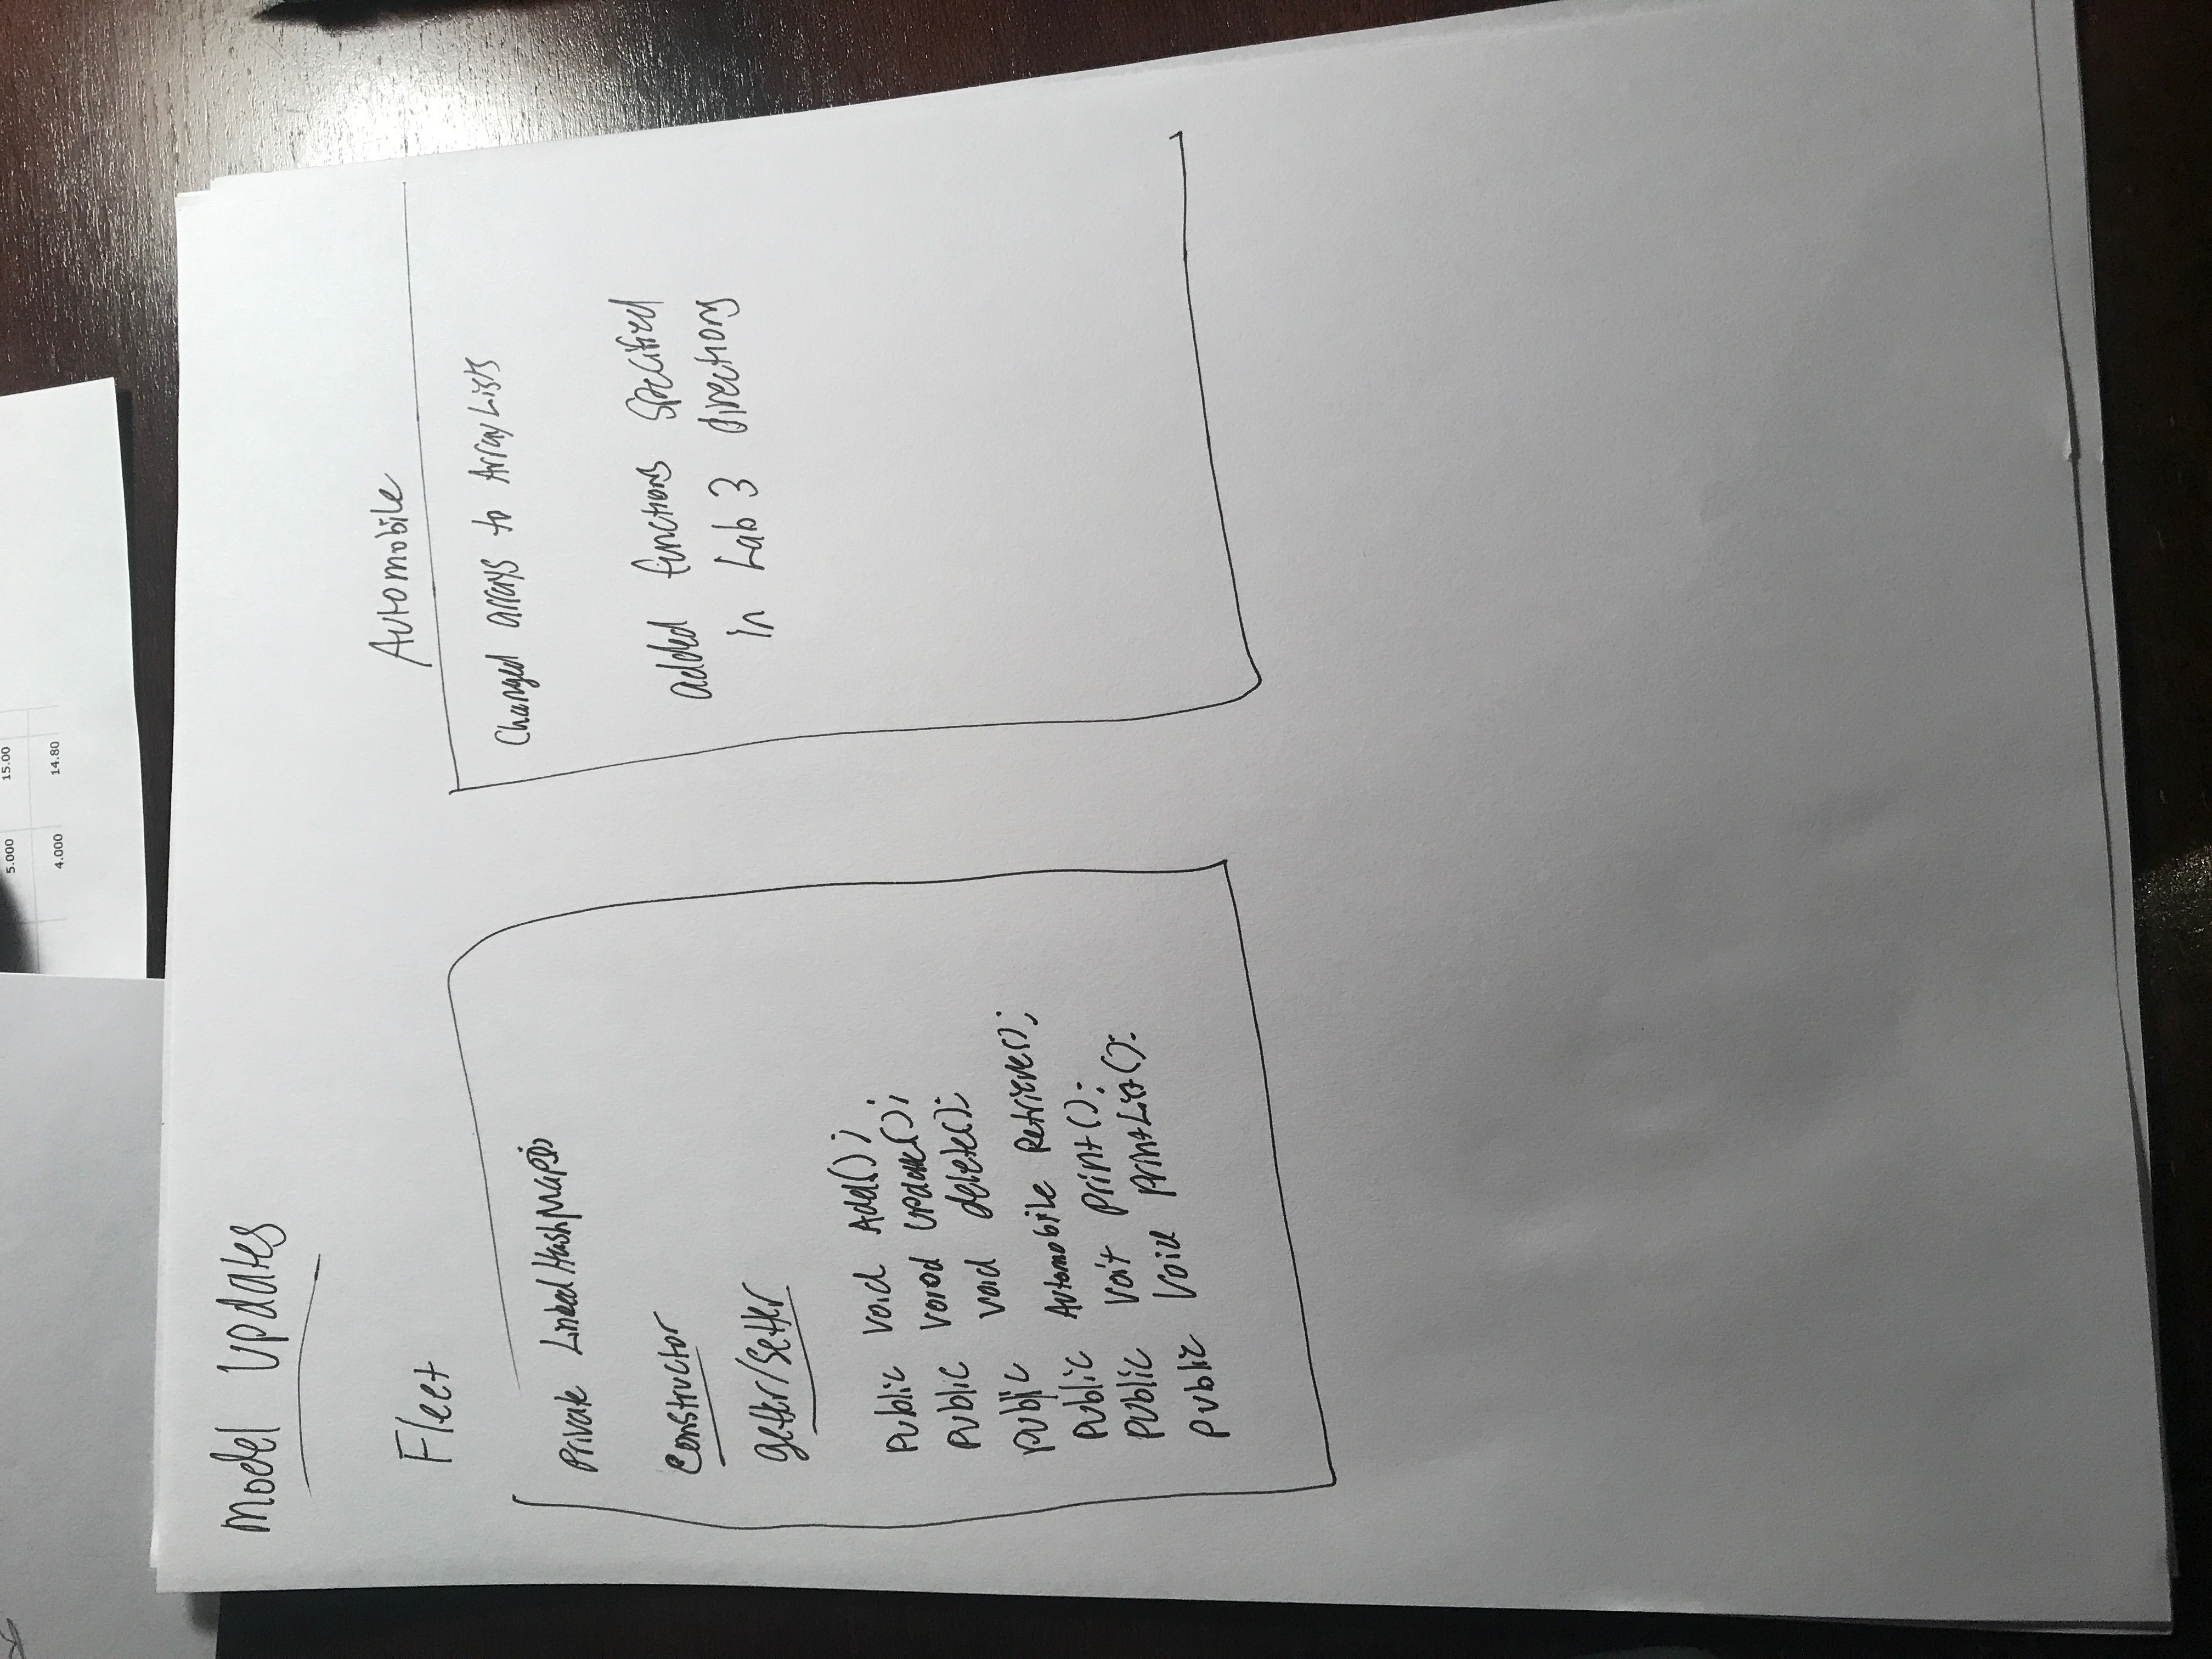 5.000 15.00
4.000 14.80
Model Updates
Fleet
Private LinkedHashMap
Constructor
getter/setter
Public Void Add();
Public Void Update();
Public Void delete();
Public Automobile Retrieve();
Public Voit Print();
Public Void PrintList();
Automobile
Changed arrays to ArrayLists
added functions specified
in Lab 3 directions